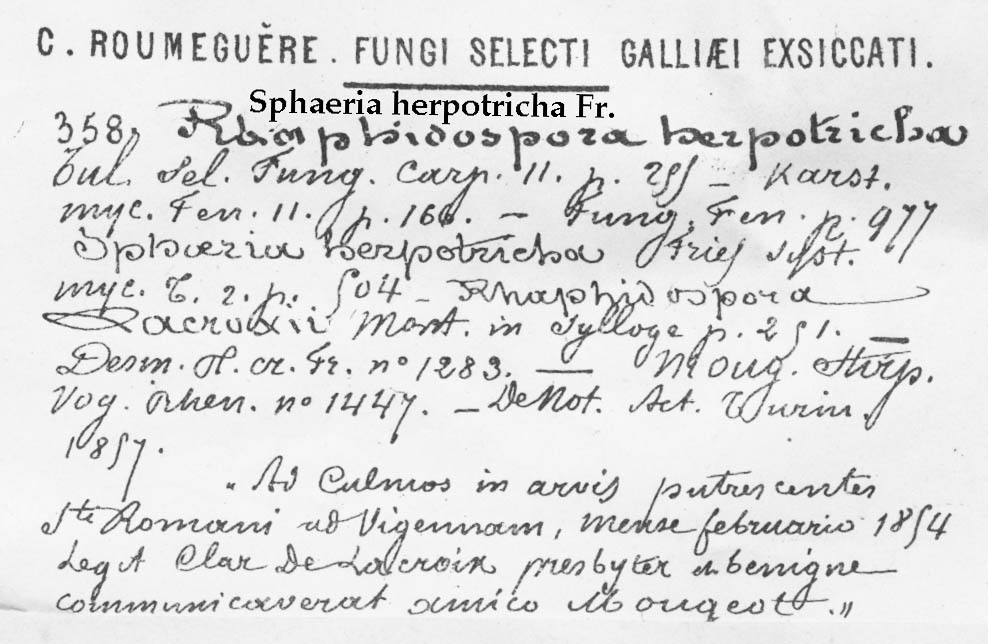 C. ROUMEGUĔRE. FUNGI SELECTI GALLIÆI EXSICCATI.
Sphaeria herpotricha Fr.
358, Rhaphidospora herpotricha
Tul. Sel. Fung. Carp. 11. p. 255 – Karst.
myc. Fen. 11. p. 166. – Fung. Fen. p. 977
Sphaeria herpotricha Fries Syst.
myc. T. 2. p. 504 – Rhaphidospora
Lacroixii Mont. in Sylloge p. 251. –
Desm. Pl. cr. Fr. n° 1283. — Moug. Stirp.
Vog. Rhen. n° 1447. – DeNot. Act. Turin.
1857.
" Ad Culmos in arvis putrescentes
Sti Romani ad Vigennam, mense februario 1854
Legit Clar De Lacroix presbyter et benigne
communicaverat amico Mougeot. "